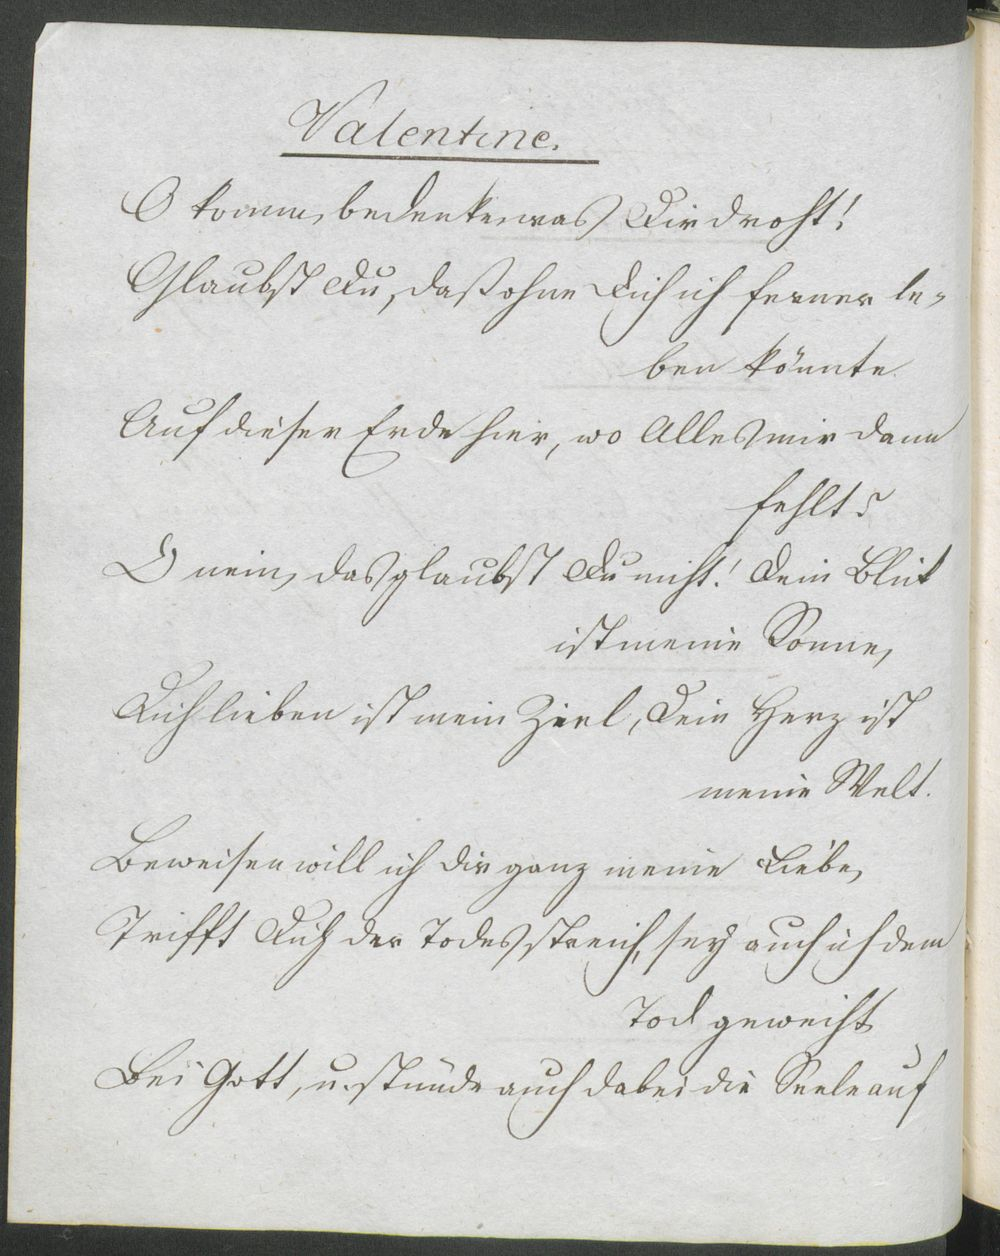 Valentine.
O komm, bedenke, was Dir droht!
Glaubst Du, daß ohne Dich ich ferner le-
ben könnte
Auf dieser Erde hier, wo Alles mir dann
fehlt?
O nein, das glaubst Du nicht! Dein Blick
ist meine Sonne,
Dich lieben ist mein Ziel, Dein Herz ist
meine Welt.
Beweisen will ich Dir ganz meine Liebe,
Trifft Dich der Todesstreich, sey auch ich dem
Tod geweiht
Bei Gott, u. stünde auch dabei die Seele auf